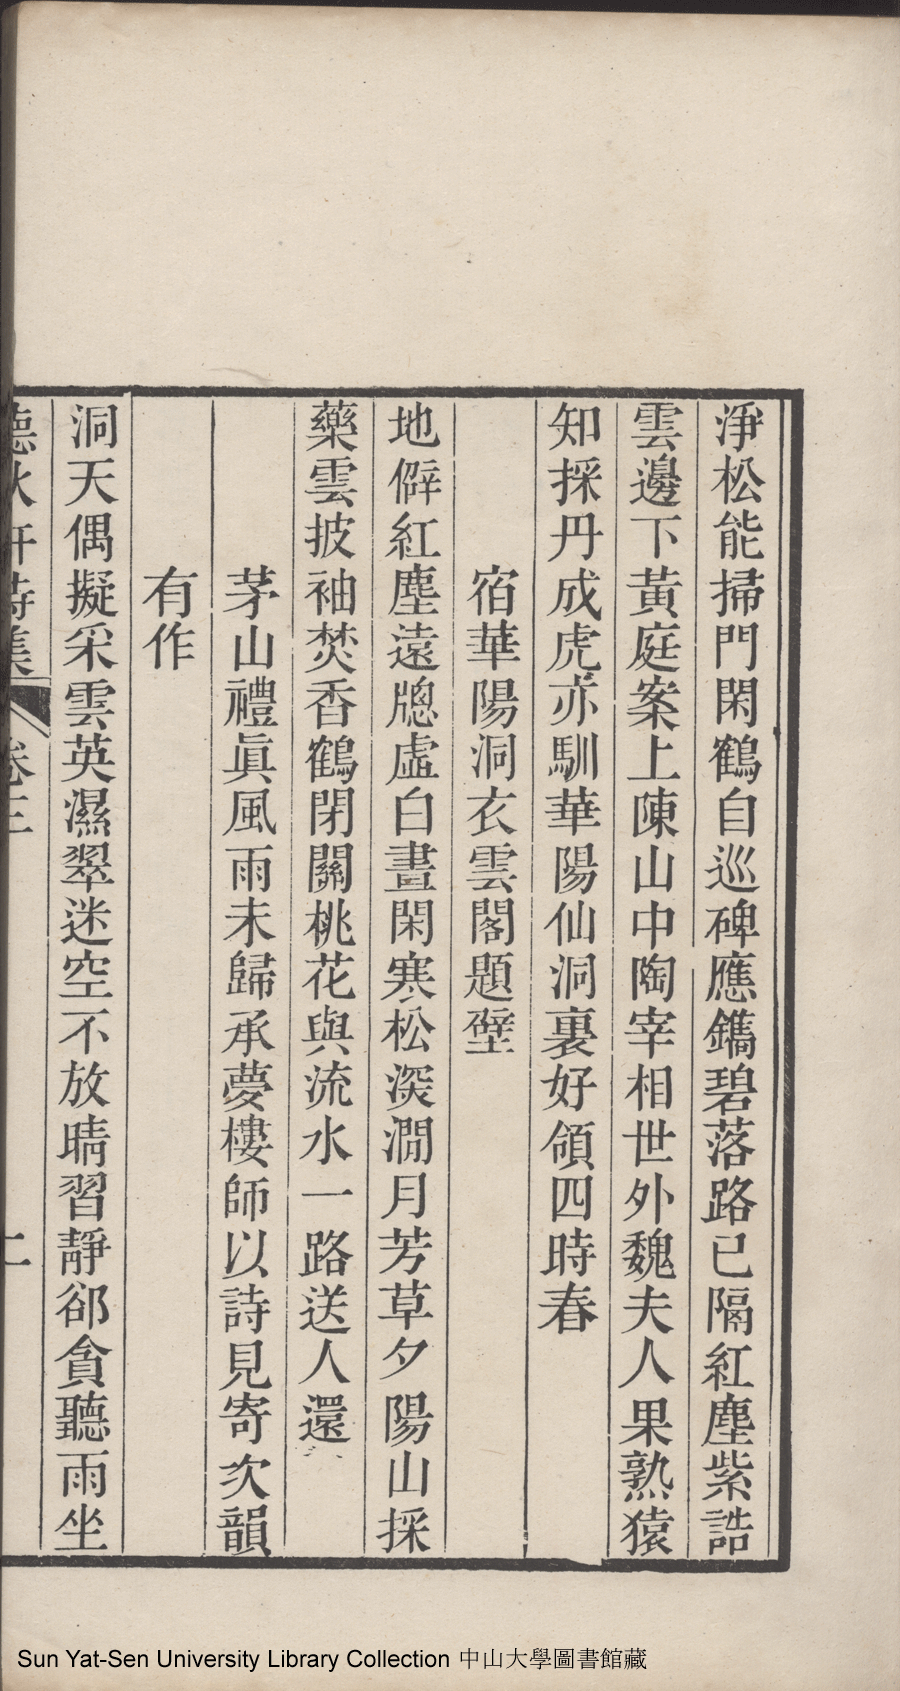 淨松能掃門閑鶴自巡碑應鐫碧落路已隔紅塵紫誥
雲邊下黃庭案上陳山中陶宰相世外魏夫人果熟猿
知採丹成虎亦馴華陽仙洞裏好領四時春
宿華陽洞衣雲閣題壁
地僻紅塵遠牕虛白晝閑寒松深澗月芳草夕陽山採
藥雲披袖焚香鶴閉關桃花與流水一路送人還
茅山禮眞風雨未歸承夢樓師以詩見寄次韻
有作
洞天偶擬采雲英濕翠迷空不放晴習靜郤貪聽雨坐
聽秋軒詩集 卷三
Sun Yat-Sen University Library Collection 中山大學圖書館藏